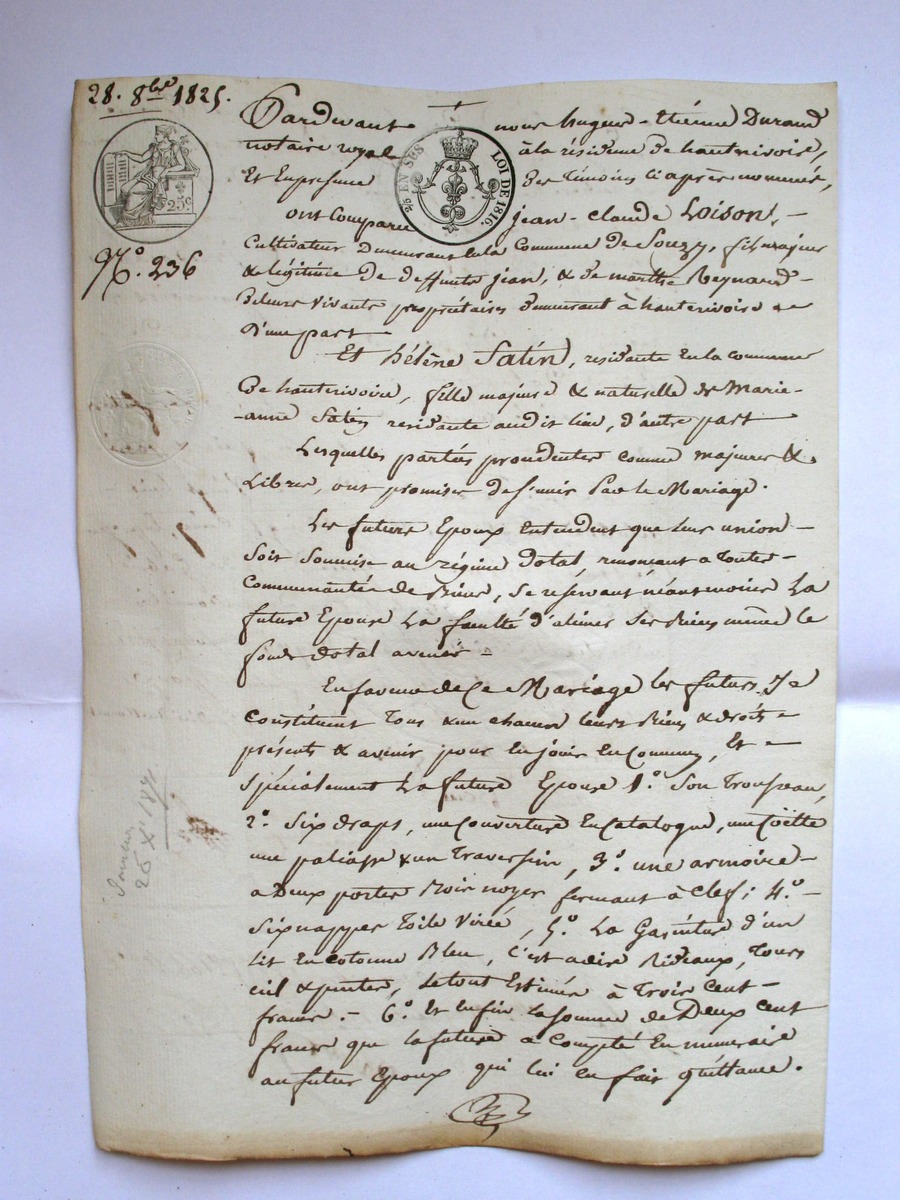 28. 8bre 1825.
Pardevant nous hugues-étiénne Durand
notaire royal à la résidense de hauterivoire,
Et En presense Des témoins ci après nommés,
25c
2/5 EN SUS LOI DE 1816.
N.º 236
ont Comparu jean-claude Loison, -
Cultivateur Demeurant En la Commune de Souzy, fils majeur
& légitime de deffunts jean, & de marthe Reynard -
De leurs vivants propriétaires Demeurant à hauterivoire
D'une part
Et hélène Satin, residante En la commune
De hauterivoire, fille majeure & naturelle de Marie-
-anne Satin residante audit lieu, d'autre part
Lesquelles parties procedentes comme majeures &
Libres, ont promises de s'unir Par le Mariage.
Les futurs Epoux Entendent que leur union -
Soit Soumise au régime Dotal, renonceant a toutes -
Communautés de Biens, Se réservant néantmoins La
future Epouse La faculté d'aliéner Ses Biens même le
fonds dotal avenir -
En faveur de Ce Mariage les futurs Se
Constituent tous & un chacun leurs Biens & droits
présents & avenir pour En jouir En Commun, Et -
Spécialement La future Epouse 1.º Son trousseau,
2.º Six draps, une Couverture En Catalogne, une Coëtte
une paliasse & un traversin, 3.º une armoire -
a Deux portes Bois noyer fermant à Clef; 4.º -
Six nappes toile Virée, 5.º La Garniture d'un
Lit En Cotonne Bleu, C'est a dire Rideaux, tours
ciel & pentes, le tout Estimés à Trois Cent -
francs. - 6.º Et Enfin la somme de Deux Cent
francs que la future a Compté En numeraire
au futur Epoux qui lui en fait quittance.
25 Xbre